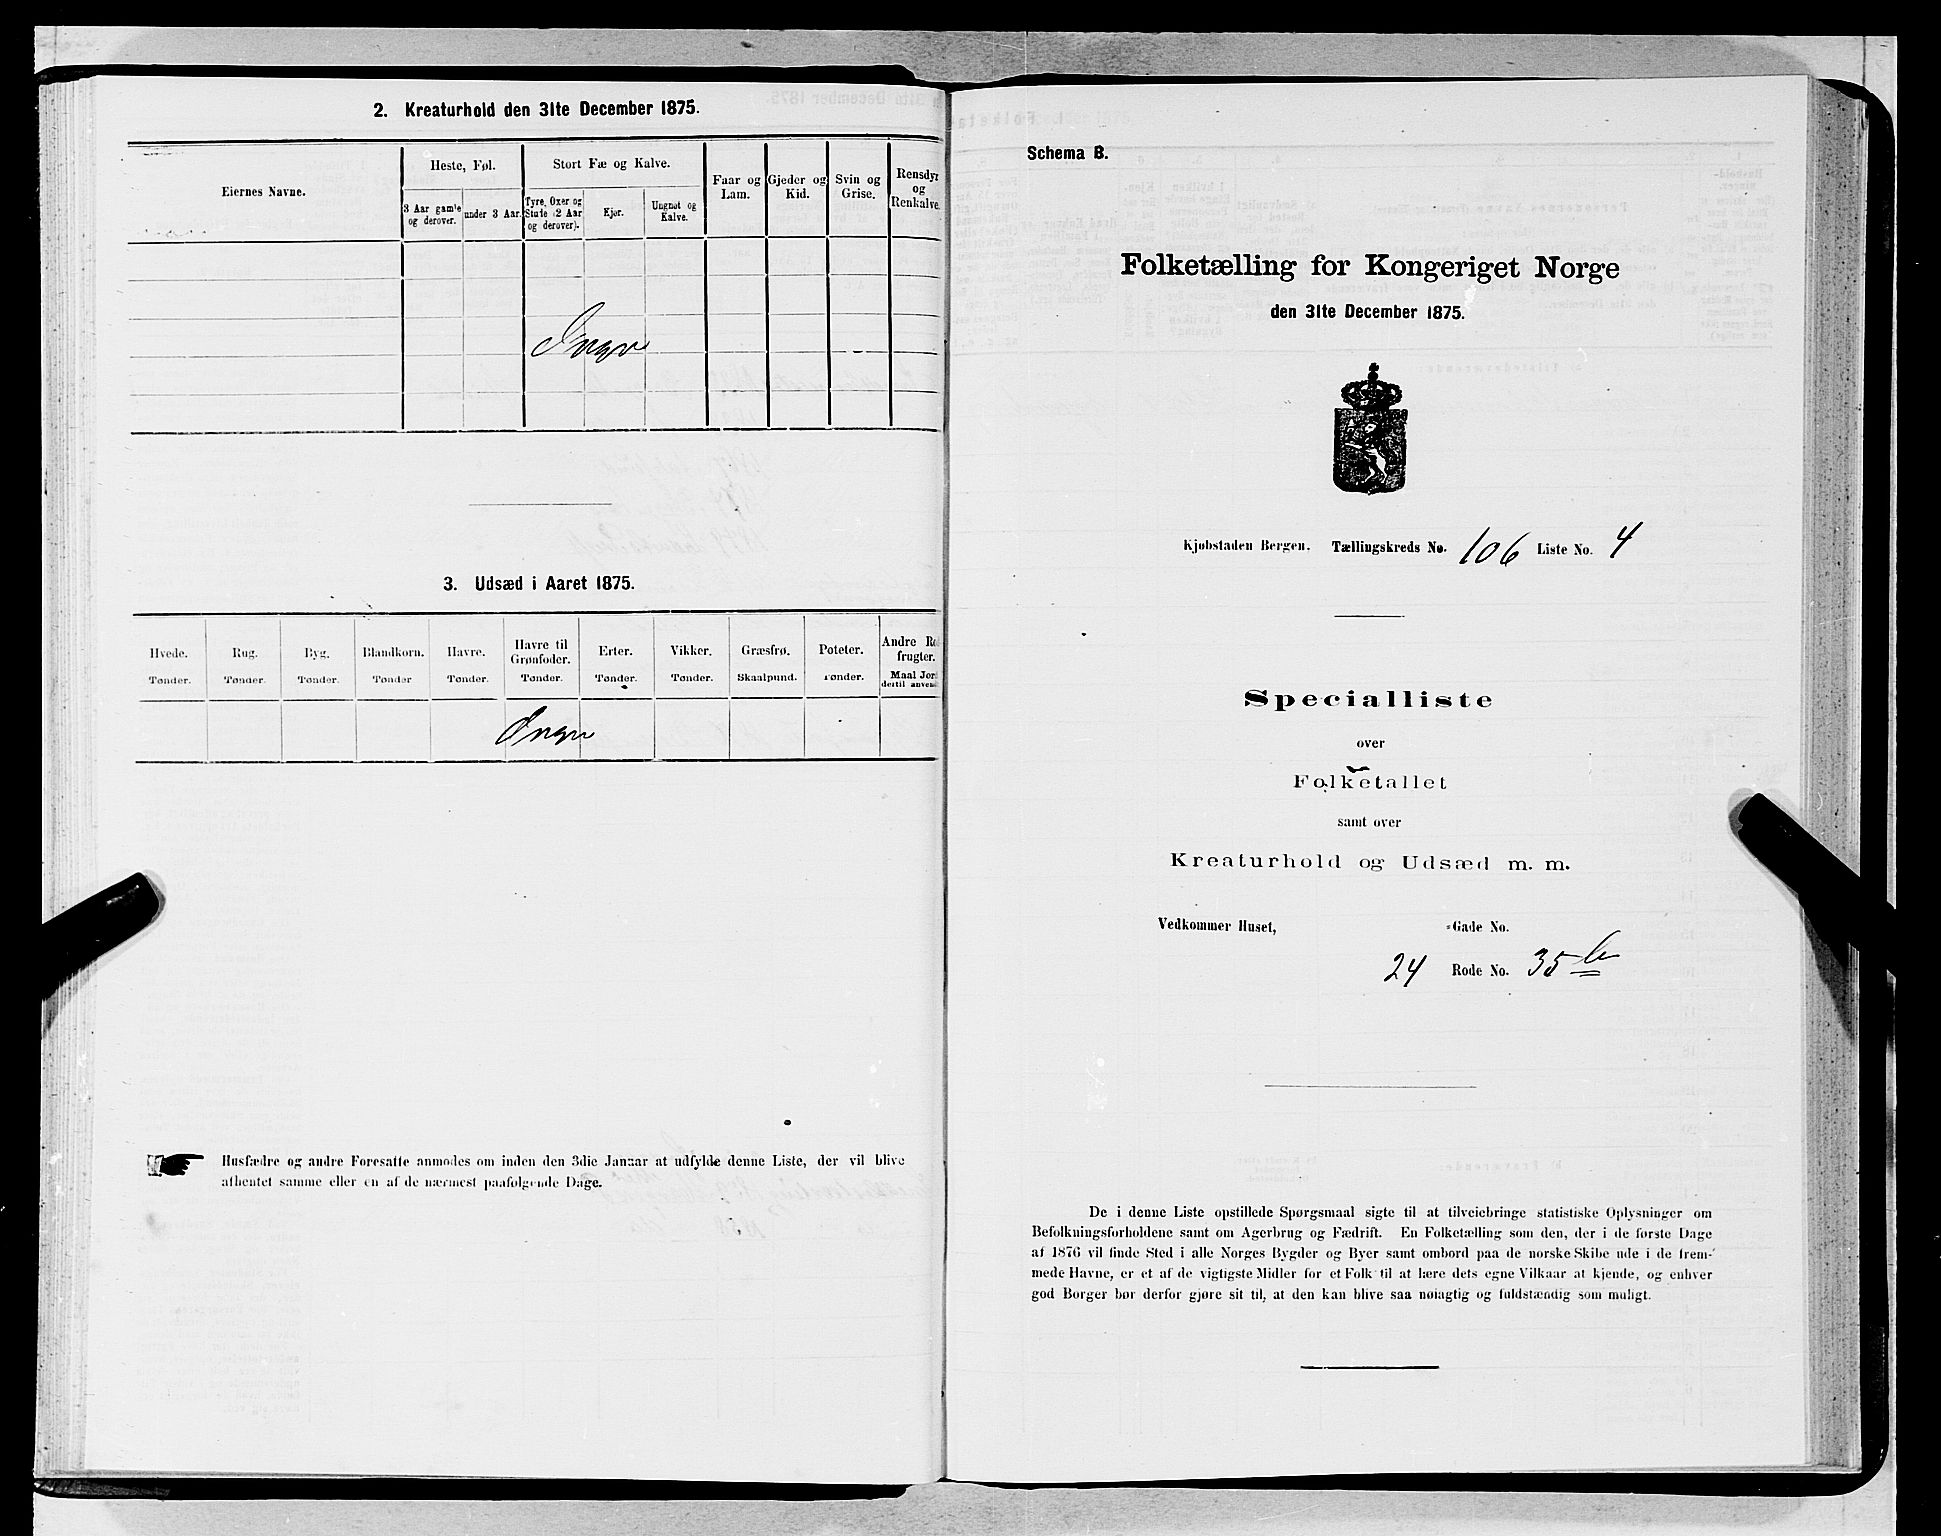 2. Kreaturhold den 31te December 1875.
Eiernes Navne.
Heste, Føl.
3 Aar gamle og derover.
under 3 Aar.
Stort Fæ og Kalve.
Tyre, Oxer og Stude (2 Aar og derover).
Kjør.
Ungnøt og Kalve.
Faar og Lam.
Gjeder og Kid.
Svin og Grise.
Rensdyr og Renkalve.
Ingen
3. Udsæd i Aaret 1875.
Hvede. Tønder.
Rug. Tønder.
Byg. Tønder.
Blandkorn. Tønder
Havre. Tønder.
Havre til Grønfoder. Tønder.
Erter. Tønder.
Vikker. Tønder.
Græsfrø. Skaalpund.
Poteter. Tønder.
Andre Rodfrugter. Maal Jord dertil anvendt.
Ingen
Husfædre og andre Foresatte anmodes om inden den 3die Januar at udfylde denne Liste, der vil blive
afhentet samme eller en af de nærmest paafølgende Dage.
Schema B.
Folketælling for Kongeriget Norge
den 31te December 1875.
Kjøbstaden Bergen. Tællingskreds No. 106 Liste No. 4
Specialliste
over
Folketallet
samt over
Kreaturhold og Udsæd m. m.
Vedkommer Huset, -Gade No.
24 Rode No. 35 b
De i denne Liste opstillede Spørgsmaal sigte til at tilveiebringe statistiske Oplysninger om
Befolkningsforholdene samt om Agerbrug og Fædrift. En Folketælling som den, der i de første Dage
af 1876 vil finde Sted i alle Norges Bygder og Byer samt ombord paa de norske Skibe ude i de frem-
mede Havne, er et af de vigtigste Midler for et Folk til at lære dets egne Vilkaar at kjende, og enhver
god Borger bør derfor gjøre sit til, at den kan blive saa nøiagtig og fuldstændig som muligt.